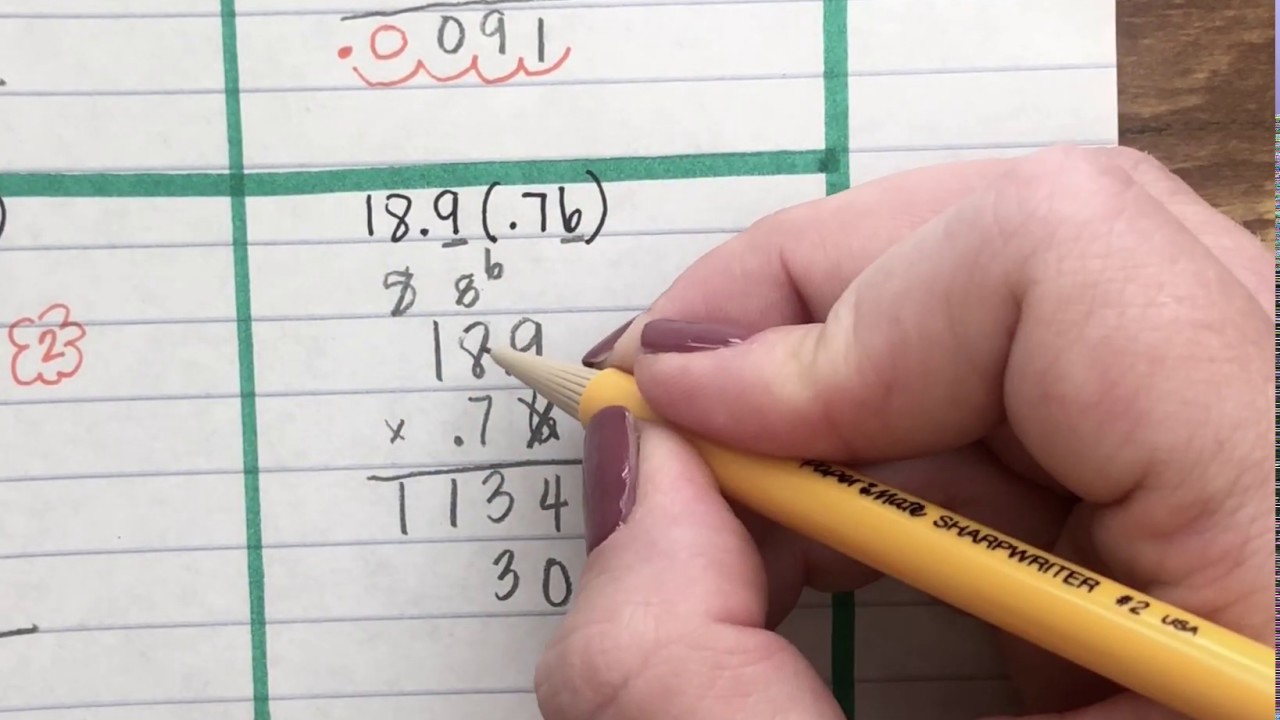 .0 091
18.9 (.76)
8 8 6
189
x .76
1134
30
2
PaperMate SHARPWRITER #2 USA